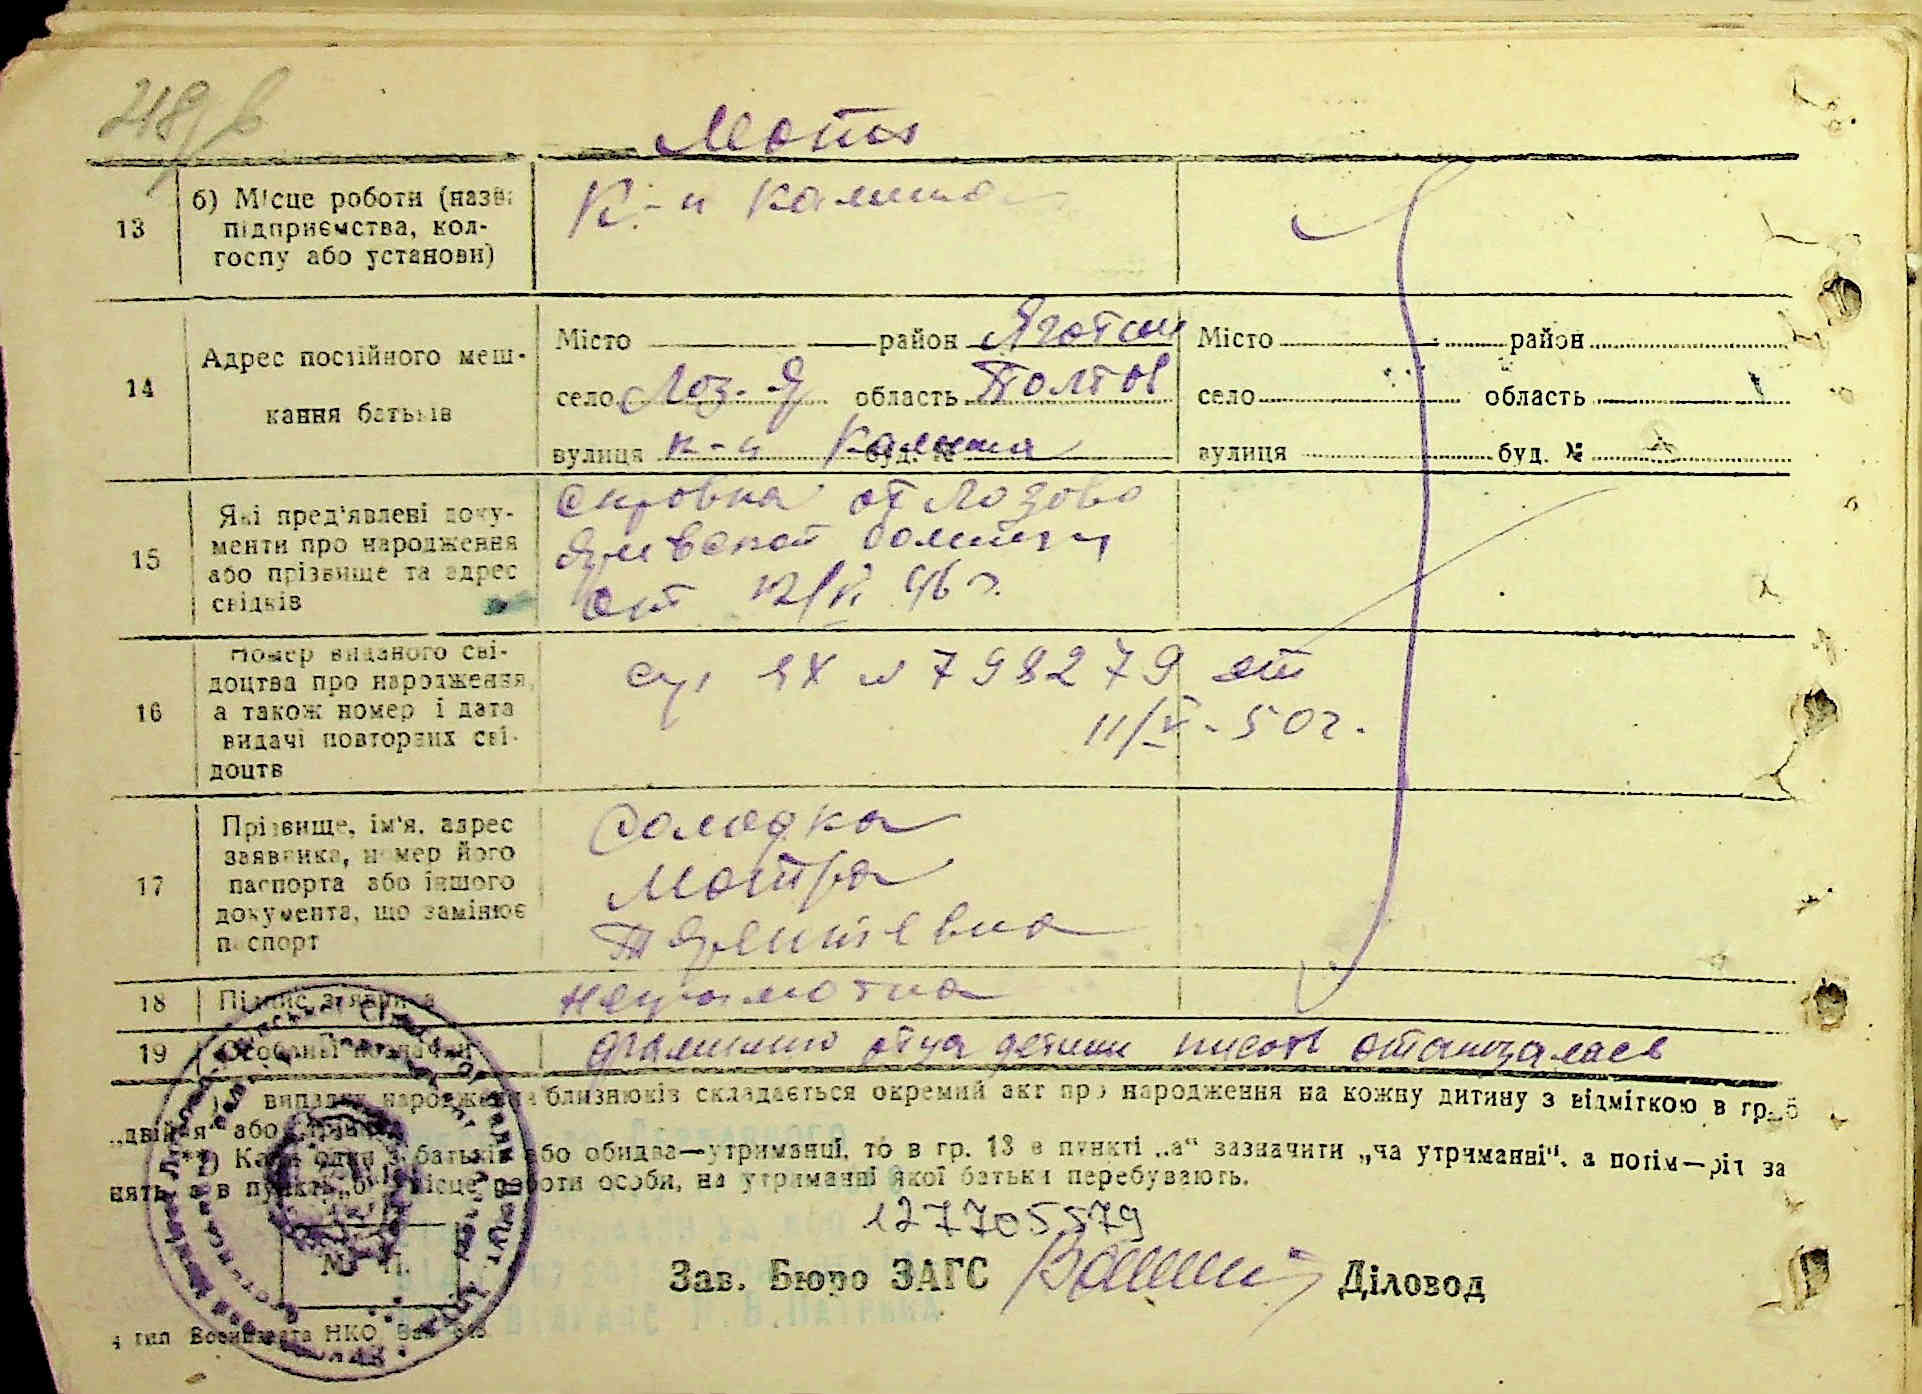 218/в
Мать
13
б) Місце роботи (назва
підприємства, кол-
госпу або установи)
К-п Калинина
14
Адрес постійного меш-
кання батьків
Місто район Яготин
село Лоз-Я область Полтов
вулиця к-п Калинина буд. №
Місто район
село область
вулиця буд. №
15
Які пред'явлені доку-
менти про народження
або прізвище та адрес
свідків
Справка от Лозово
Яривской больницы
от 12/ 46 г.
16
Номер виданого сві-
доцтва про народження,
а також номер і дата
видачі повторних сві-
доцтв
ЯХ № 798279 от
11/V-50г.
17
Прізвище, ім'я, адрес
заявника, номер його
паспорта або іншого
документа, що замінює
паспорт
Солодка
Мотря
18
Підпис заявника
неграмотна
19
Особливі позначки
фамилию отца детини писать отаказалась
випадку народження близнюків складається окремий акт про народження на кожну дитину з відміткою в гр. 6
„двійня“ або
**) Коли один з батьків або обидва—утриманці, то в гр. 13 в пункті „а“ зазначити „на утриманні“, а потім—рід за
нять, а в пункті „б“ місце роботи особи, на утриманні якої батьки перебувають.
127705579
Зав. Бюро ЗАГС
Діловод
М. П.
4 тип Воениздата НКО Зак